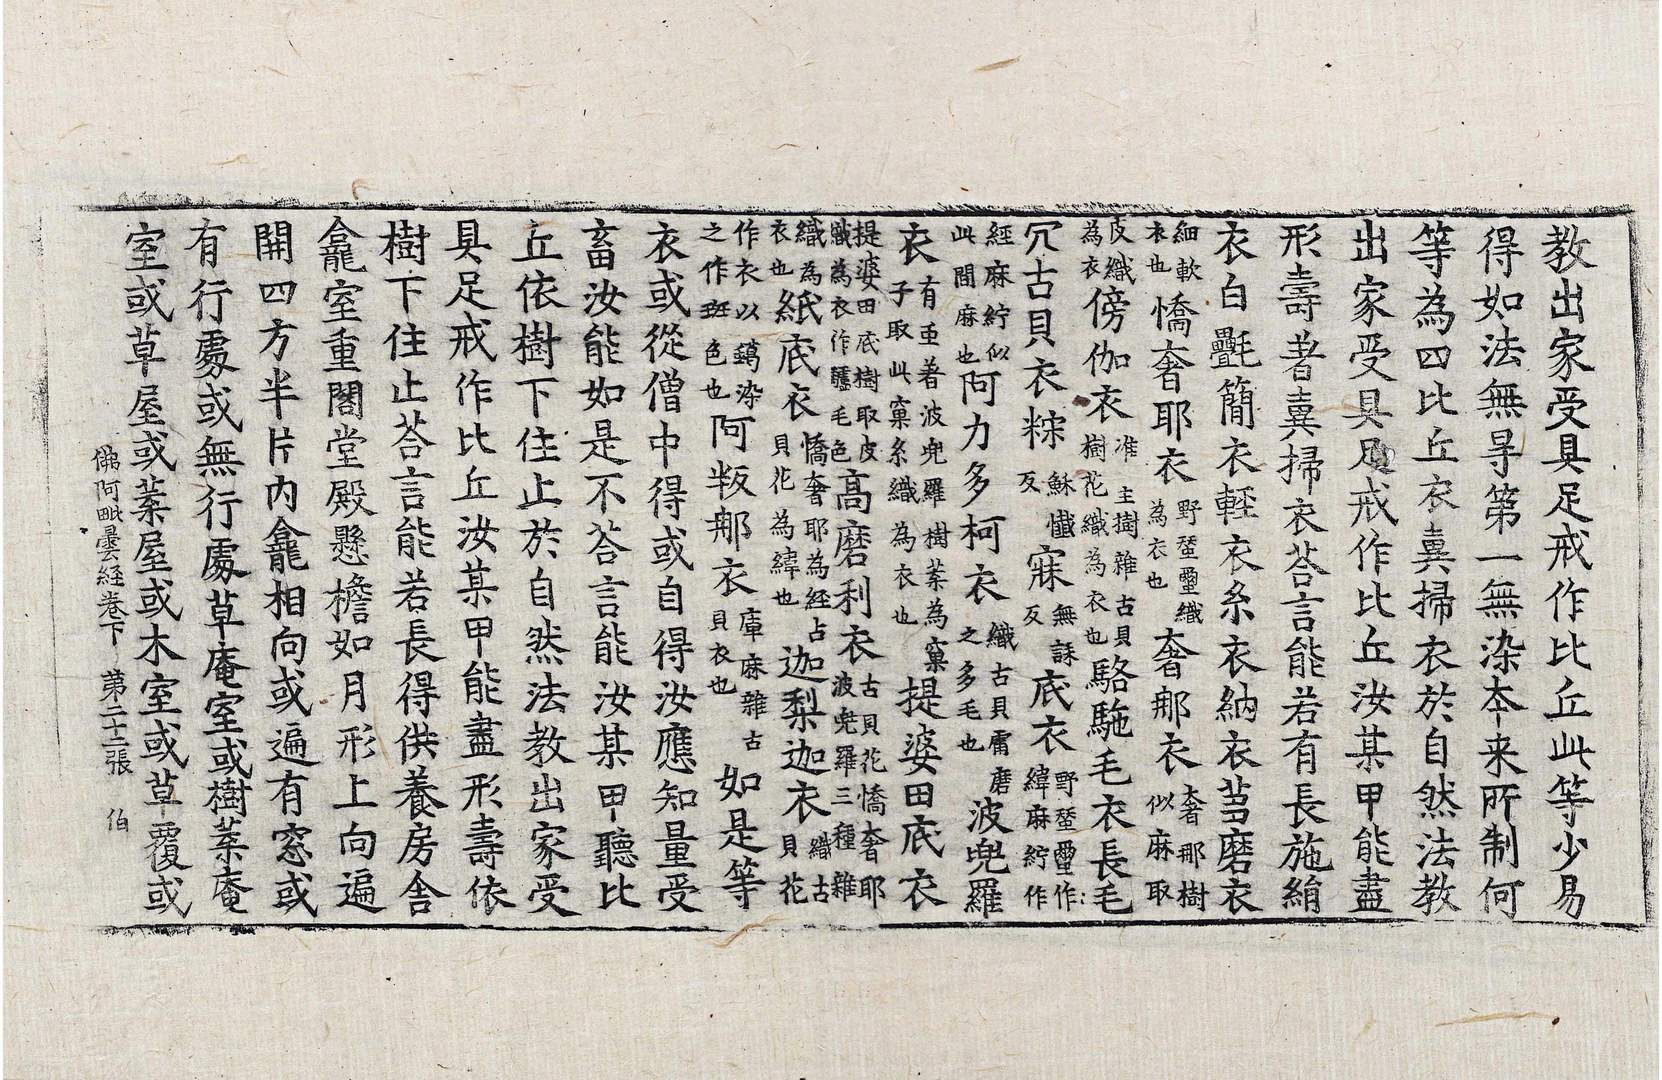 教出家受具足戒作比丘此等少易
得如法無㝵第一無染本来所制何
等為四比丘衣糞掃衣於自然法教
出家受具足戒作比丘汝某甲能盡
形壽著糞掃衣荅言能若有長施絹
衣白㲲簡衣輕衣糸衣納衣芻磨衣
細軟衣也憍奢耶衣野蚕璽織為衣也奢那衣奢那樹似麻取
皮織為衣傍伽衣准主樹雜古貝樹花織為衣也駱駞毛衣長毛
冗古貝衣䊞穌懺反寐無訸反底衣野蚕璽作緯麻紵作
經麻紵似此間麻也阿力多柯衣織古貝膚磨之多毛也波兜羅
衣有亜著波兜羅樹葉為窠子取此窠糸織為衣也提婆田底衣
提婆田底樹取皮織為衣作驢毛色高磨利衣古貝花憍奢耶波兜羅三種雜
織為衣也紙底衣憍奢耶為経占貝花為緯也迦梨迦衣織古貝花
作衣以鵄染之作斑色也阿叛那衣庫麻雜古貝衣也如是等
衣或從僧中得或自得汝應知量受
畜汝能如是不荅言能汝某甲聽比
丘依樹下住止於自然法教出家受
具足戒作比丘汝某甲能盡形壽依
樹下住止荅言能若長得供養房舎
龕室重閣堂殿懸檐如月形上向遍
開四方半片内龕相向或遍有窓或
有行處或無行處草庵室或樹葉庵
室或草屋或葉屋或木室或草覆或
佛阿毗曇経卷下　第二十二張　伯